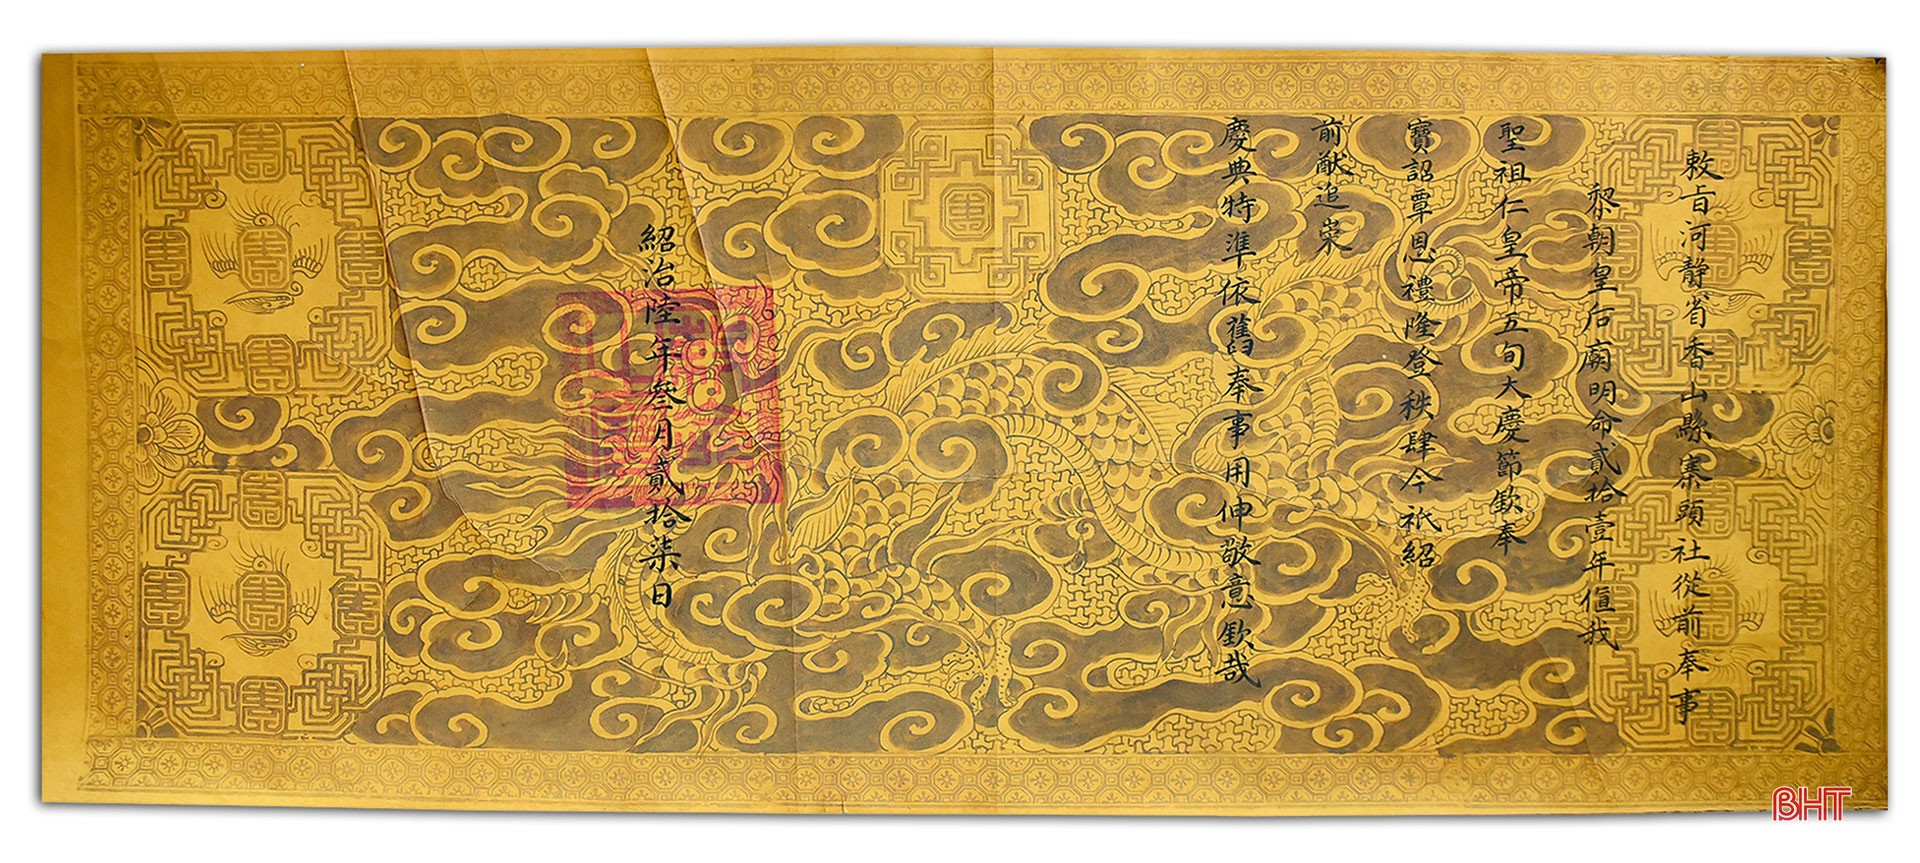 敕旨河靜省香山縣寨頭社從前奉事
黎朝皇后廟明命貳拾壹年值我
聖祖仁皇帝五旬大慶節欽奉
寶詔覃恩禮隆登秩肆今祇紹
前猷追崇
慶典特準依舊奉事用伸敬意欽哉
紹治陸年叁月貳拾柒日
BHT